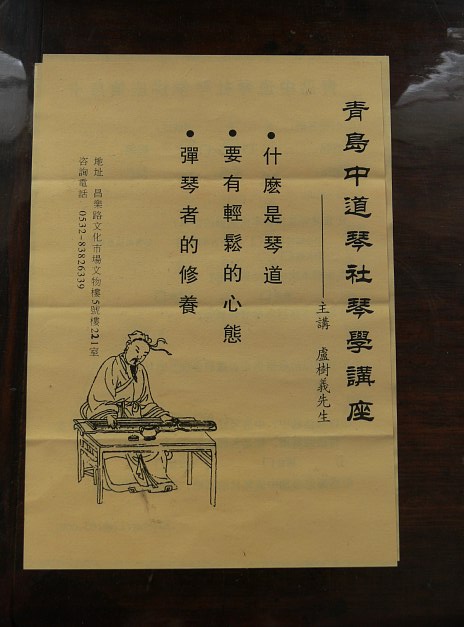 青島中道琴社琴學講座
主講 盧樹義先生
●什麽是琴道
●要有輕鬆的心態
●彈琴者的修養
地址 昌樂路文化市場文物樓5號樓221室
咨詢電話 0532-83826339